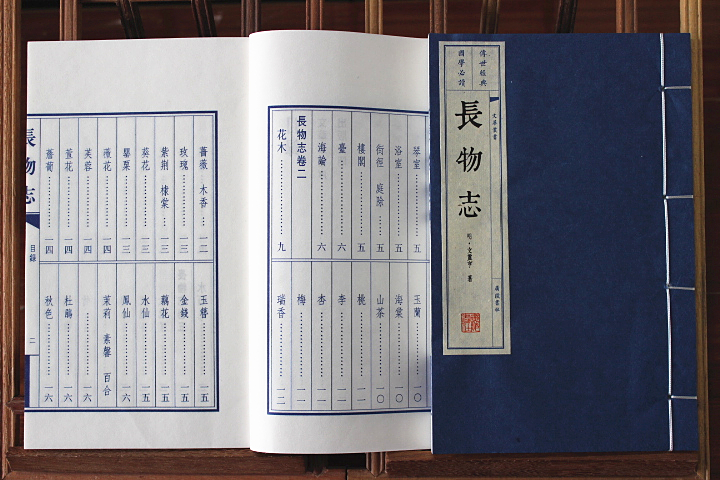 傳世經典
國學必讀
文華叢書
長物志
明·文震亨 著
廣陵書社
琴室……………五
浴室……………五
街徑 庭除……………五
樓閣……………五
臺……………六
海論……………六
長物志卷二
花木……………九
玉蘭……………一〇
海棠……………一〇
山茶……………一〇
桃……………一一
李……………一一
杏……………一一
梅……………一一
瑞香……………一二
薔薇 木香……………一二
玫瑰……………一三
紫荆 棣棠……………一三
葵花……………一三
罌粟……………一三
薇花……………一四
芙蓉……………一四
萱花……………一四
薝蔔……………一四
玉簪……………一五
金錢……………一五
藕花……………一五
水仙……………一五
鳳仙……………一六
茉莉 素馨 百合
……………一六
杜鵑……………一六
秋色……………一六
長物志
目録
二